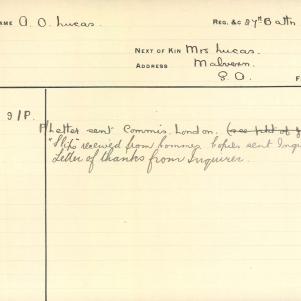 NAME A. O. Lucas. REG. &C 27th Battn
NEXT OF KIN Mrs Lucas.
ADDRESS Malvern.
S.A.
F
9/P.
P/Letter sent Commis. London. (see
"Slip" received from Commis. Copies sent Inqui
Letter of thanks from Inquirer.